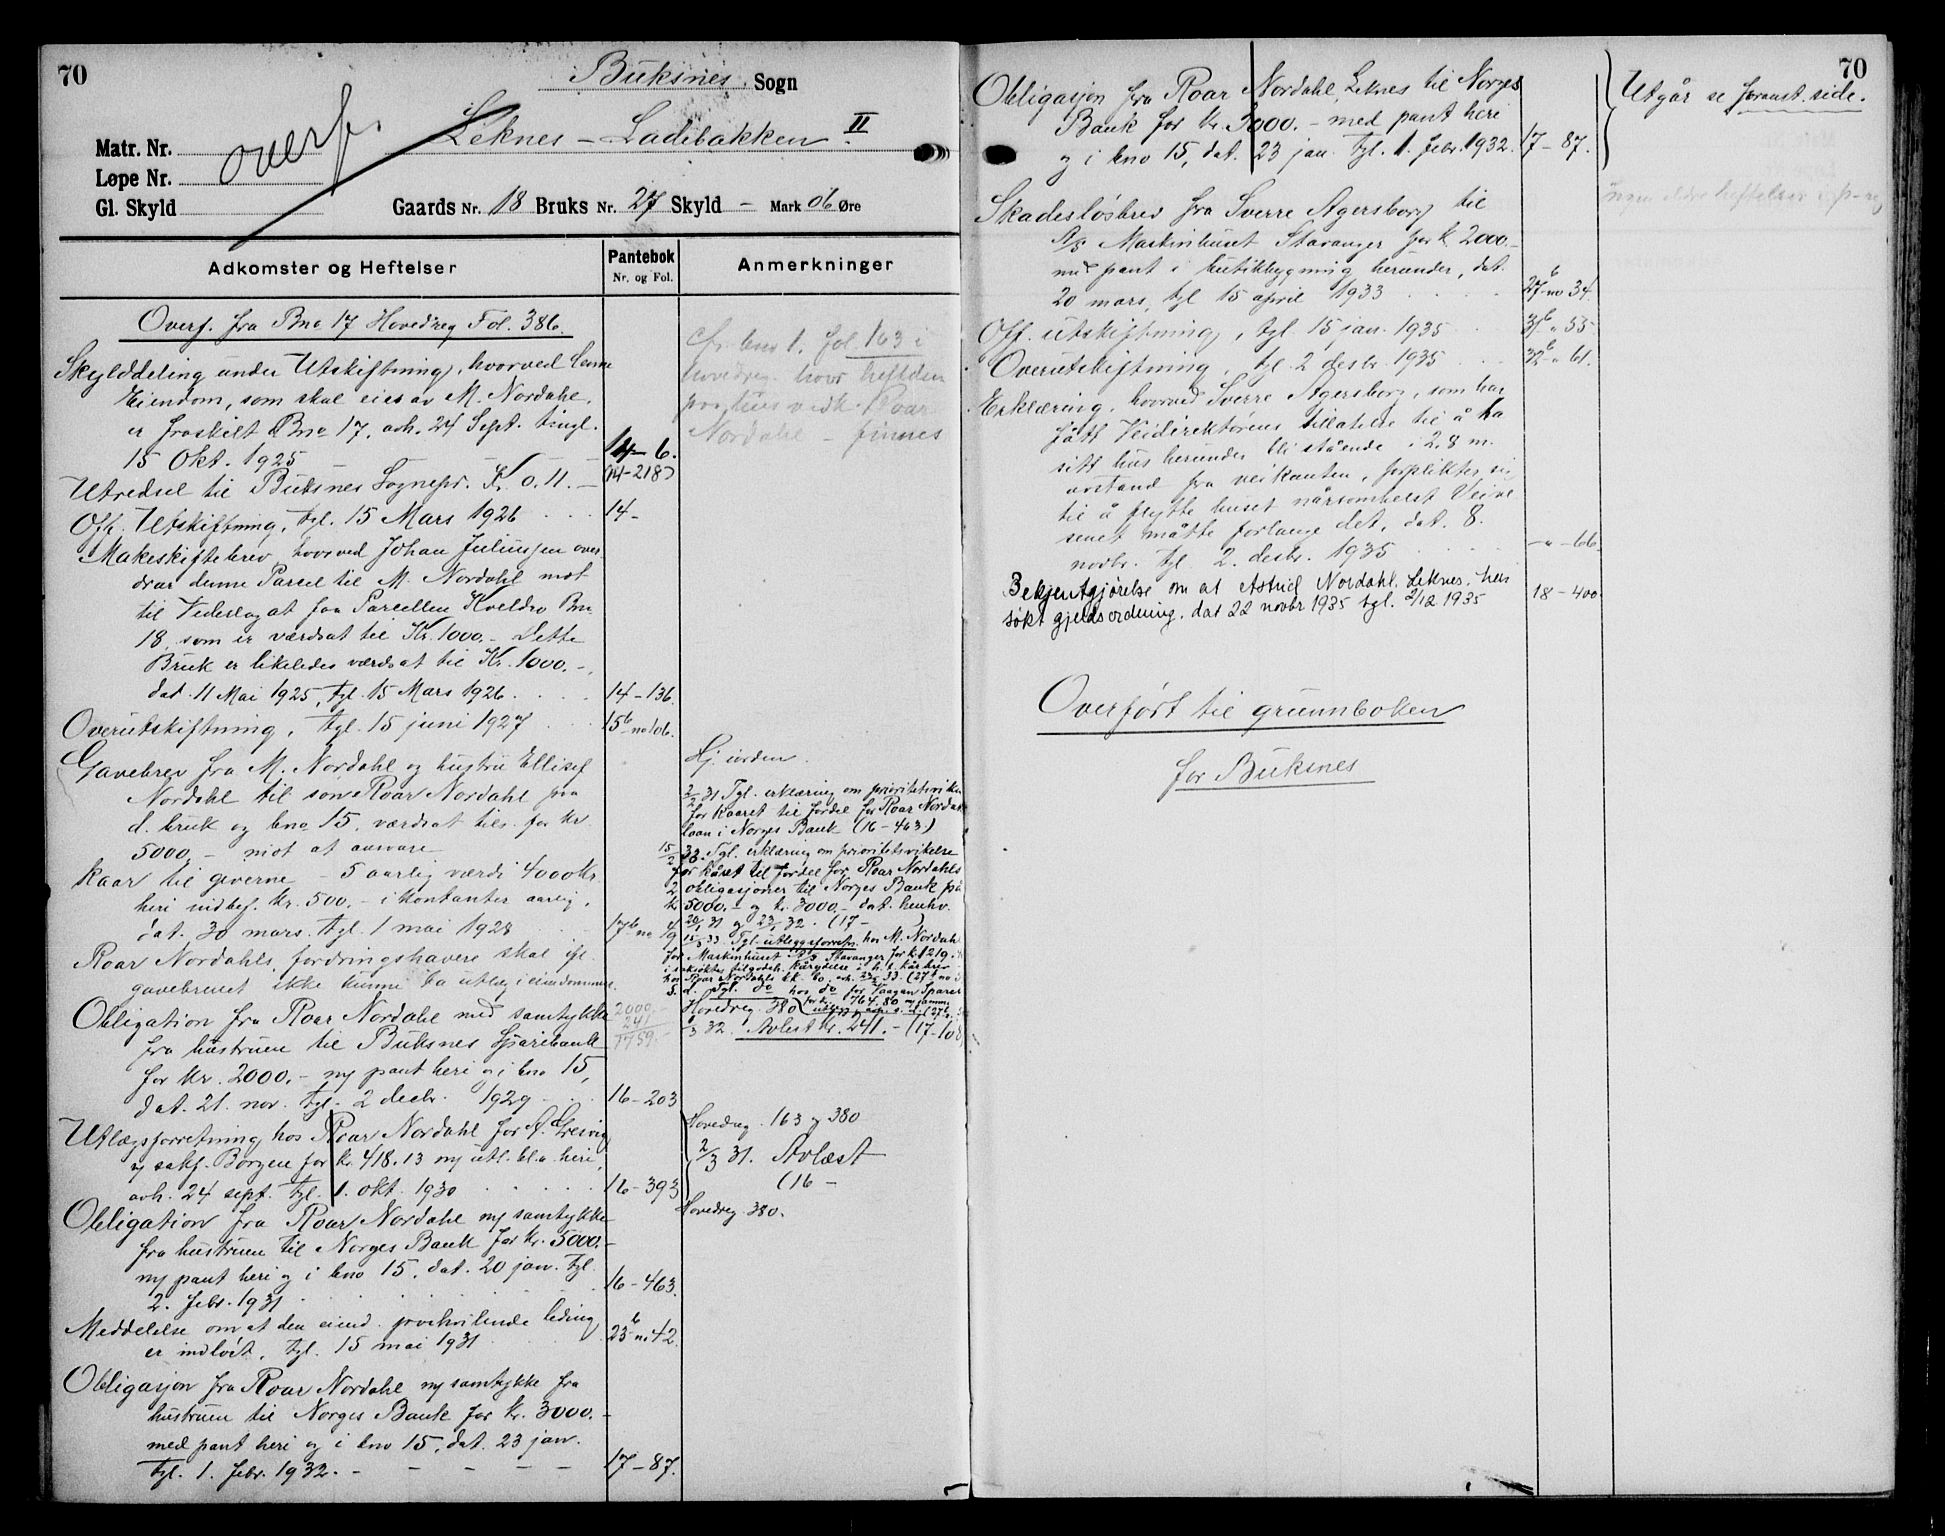 70
Buksnes Sogn
Leknes – Ladebakken II
overf.
Matr. Nr.
Løpe Nr.
Gl. Skyld
Gaards Nr. 18 Bruks Nr. 27 Skyld – Mark 06 Øre
Adkomster og Heftelser
Pantebok
Nr. og Fol.
Anmerkninger
Overf. fra Bno 17 Hovedreg Fol. 386.
Skylddeling under Utskiftning, hvorved denne
Eiendom, som skal eies av M. Nordahl,
er fraskilt Bno 17, avh. 24 Sept. tingl.
15 Okt. 1925 – 14 – 6.
(14–218)
Utredsel til Buksnes Sognepr. Kr 0.11. –
Off. Utskiftning, tgl. 15 Mars 1926 . . . 14 –
Makeskiftebrev, hvorved Johan Juliussen over-
drar denne Parcel til M. Nordahl mot
til Vederlag at faa Parcellen Kveldro Bno
18, som er værdsat til Kr. 1000.– Dette
Bruk er likeledes værdsat til Kr. 1000.–,
dat. 11 Mai 1925, tgl. 15 Mars 1926 . . . 14 – 136.
Overutskiftning, tgl. 15 juni 1927 . . . 15b no 106.
Gavebrev fra M. Nordahl og hustru Ellisef
Nordahl til søn Roar Nordahl paa
d. bruk og bno 15, værdsat tils. for kr.
5000.– mot at utrede
kaar til giverne – 5 aarlig værdi 4000 kr.
heri indbef. kr. 500.– i kontanter aarlig,
dat. 30 mars. tgl. 1 mai 1928 17b no 19
Roar Nordahls fordringshavere skal ifl.
gavebrevet ikke kunne ta utlæg i eiendommen.
Obligation fra Roar Nordahl med samtykke
fra hustruen til Buksnes Sparebank
for kr. 2000.– m/ pant heri og i bno 15,
dat. 21. nov. tgl. 2 decbr. 1929 . . 16 – 203
2000.–
241
1759.–
Utlægsforretning hos Roar Nordahl for
og sakf. Borgen for kr. 418.13 m/ utl. bl.a. heri,
avh. 24 sept. tgl. 1. okt. 1930 . . . . 16 – 393
Obligation fra Roar Nordahl m/ samtykke
fra hustruen til Norges Bank for kr. 5000.–
m/ pant heri og i bno 15, dat. 20 jan. tgl.
2. febr. 1931 . . . . 16 – 463.
Meddelelse om at den eiend. paahvilende leding
er indløst, tgl. 15 mai 1931 23b no 42.
Obligasjon fra Roar Nordahl m/ samtykke fra
hustruen til Norges Bank for kr. 3000.–
med pant heri og i bno 15, dat. 23 jan.
tgl. 1. febr. 1932. – – – – – 17 – 87.
cfr. bno 1. fol. 163 i
hovedreg. hvor heftelsen
paa hus vedk. Roar
Nordahl – finnes
Hj. i orden.
2/2 31 Tgl. erklæring om prioritetsvikelse
for kaaret til fordel for Roar Nordahls
laan i Norges Bank (16 – 463)
15/2 33. Tgl. erklæring om prioritetsvikelse
for kåret til fordel for Roar Nordahls
2 obligasjoner til Norges Bank på
kr. 5000.– og kr. 3000.– dat. henhv.
20/1 31 og 23/1 32. (17 –
15/3 33. Tgl. utleggsforretn. hos M. Nordahl
for Maskinhuset A/S Stavanger for kr. 1219.
S. d. Tgl. do hos do for Vaagan Spareb.
Hovedreg. 380
32. Avlest kr. 241.– (17–108
Hovedreg. 163 og 380
2/3 31. Avlæst
(16 –
Hovedreg. 380.
70
Obligasjon fra Roar Nordahl, Leknes til Norges
Bank for kr. 3000.– med pant heri
og i bno 15, dat. 23 jan. tgl. 1. febr. 1932. 17 – 87.
Utgår se foranst. side.
Ingen eldre heftelser i p-reg
Skadesløsbrev fra Sverre Agersborg til
A/S Maskinhuset Stavanger for kr 2000.–
med pant i butikbygning herunder, dat.
20 mars, tgl 15 april 1933 . . . . 27b no 34.
Off. utskiftning, tgl. 15 jan. 1935 . . 31b " 55.
Overutskiftning, tgl. 2 desbr. 1935 . . . 32b " 61.
Erklæring, hvorved Sverre Agersborg, som har
fått Veidirektørens tillatelse til å ha
sitt hus herunder bli stående i 2.8 m.
avstand fra veikanten, forplikter sig
til å flytte huset nårsomhelst Veive-
senet måtte forlange det, dat. 8.
novbr. tgl. 2. desbr. 1935 . . . . – " – 66.
Bekjentgjørelse om at Astrid Nordahl, Leknes, har
søkt gjeldsordning, dat 22 novbr 1935 tgl. 2/12 1935 18 – 400
Overført til grunnboken
for Buksnes